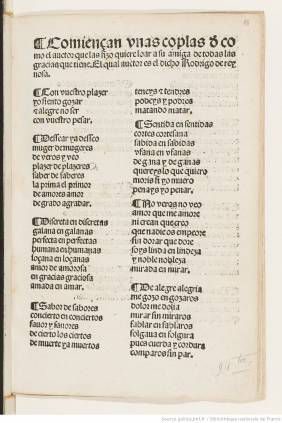 ¶Comiençan vnas coplas d̄ co
mo el auctor que las hizo quiere loar a su amiga de todas las
gracias que tiene. El qual auctor es el dicho Rodrigo de rey
nosa.
¶Con vuestro plazer
yo siento gozar
alegre no ser
con vuestro pesar.
¶Dessear ya desseo
muger de mugeres
de veros y veo
plazer de plazeres
saber de saberes
la prima el primor
de amores amor
de grado agradar.
¶Discreta en discretas
galana en galanas
perfecta en perfectas
humana en humanas
loçana en loçanas
amor de amorosa
en gracias graciosa
amada en amar.
¶Sabor de sabores
concierto en conciertos
fauor y fauores
de cierto los ciertos
de muerte ya muertos
teneys y tendres
podeys y podres
matando matar.
¶Sentida en sentidas
cortes cortesana
sabida en sabidas
vfana en vfanas
de gana y de ganas
quereys lo que quiero
moris si yo muero
penays yo penar.
¶No veras no veo
amor que me amore
ni crean que creo
que nadie os empeore
sin dorar que dore
soys linda en lindeza
y noble nobleza
mirada en mirar.
¶De alegre alegria
me gozo en gozaros
dolor me dolia
mirar sin miraros
fablar en fablaros
folgaua en folgura
pues cuerda y cordura
comparos sin par.
Source gallica.bnf.fr / Bibliothèque nationale de France